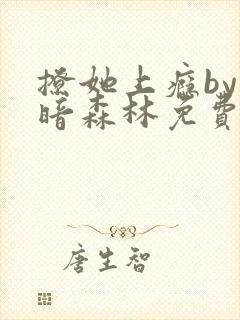 撩她上瘾by
暗森林免費
唐生智